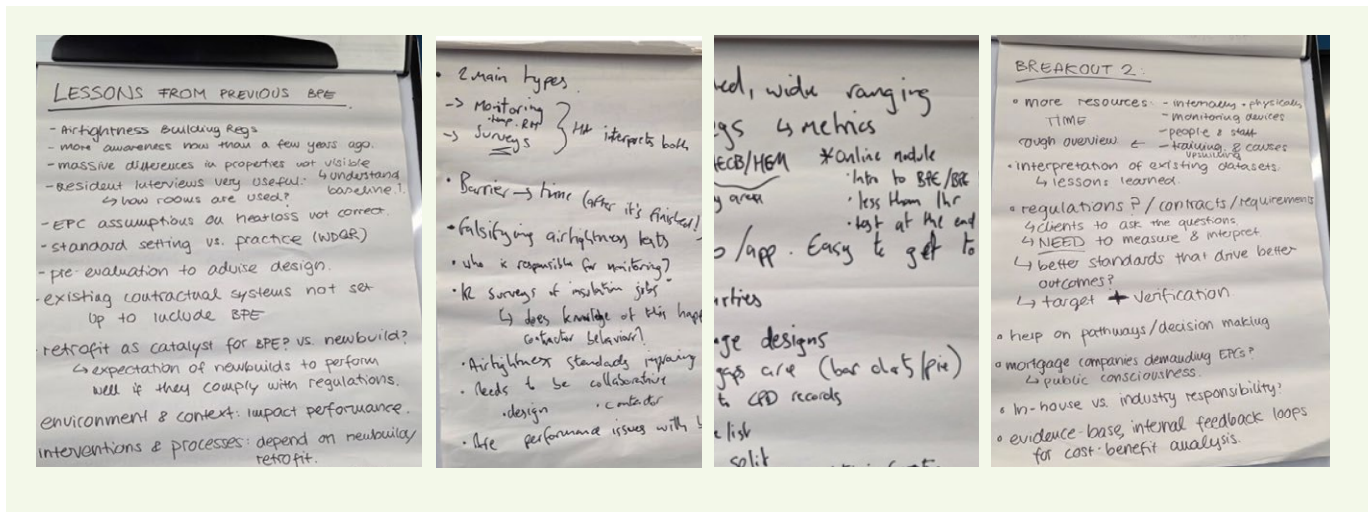 LESSONS FROM PREVIOUS BPE
- Airtightness Building Regs
- more awareness now than a few years ago.
- massive differences in properties not visible
↳ understand
- Resident Interviews very useful:
baseline!
↳ how rooms are used?
- EPC assumptions on heatloss not correct.
- standard setting vs. practice (WDQR)
- pre-evaluation to advise design.
- existing contractual systems not set
up to include BPE
retrofit as catalyst for BPE? vs. newbuild?
↳ expectation of newbuilds to perform
well if they comply with regulations.
environment & context: impact performance.
interventions & processes: depend on newbuild/
retrofit.
• 2 main types.
-> Monitoring
temp. RH
-> Surveys
} interprets both
• Barrier → time (after it's finished!
• Falsifying airtightness tests
• who is responsible for monitoring?
• surveys of insulation jobs
↳ does knowledge of this
contractor behaviour?
• Airtightness standards improving
• Needs to be collaborative
• design • contractor
• performance issues with
wide ranging
↳ metrics
AECB/HEM
* Online module
• Intro to BPE/
area
• less than 1hr
• test at the end
/app. Easy to get to
designs
gaps are (bar chart/pie)
CPD records
list
split
BREAKOUT 2:
• more resources: - internally • physically
TIME - monitoring devices
- people & staff
rough overview ← - training & causes
upskilling
• interpretation of existing datasets.
↳ lessons learned.
• regulations? / contracts / requirements
↳ clients to ask the questions
↳ NEED to measure & interpret
↳ better standards that drive better
outcomes?
↳ target + verification
• help on pathways/decision making
• mortgage companies demanding EPCs?
↳ public consciousness.
• In-house vs. industry responsibility?
• evidence-base, internal feedback loops
for cost-benefit analysis.